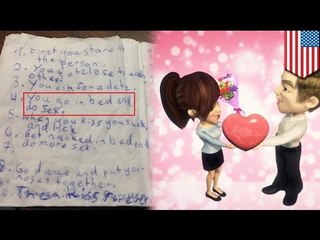 1. First you stare at
the person.
2. You get close to each
other.
3. You ask for a date
4. You go in bed and
do sex.
5. When you kiss you suck
and lick
6. Get naked in bed and
7. do more sex.
8. Go dance and put your
noses together.